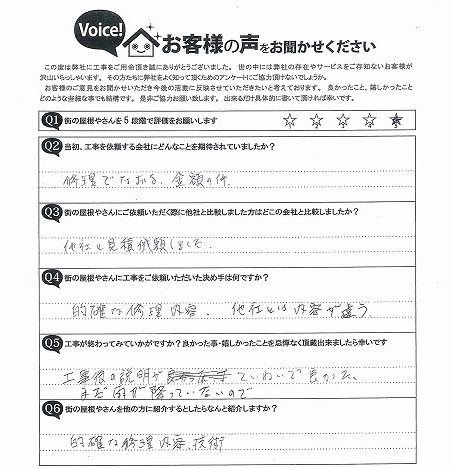 Voice!
お客様の声をお聞かせください
この度は弊社に工事をご用命頂き誠にありがとうございました。世の中には弊社の存在やサービスをご存知ないお客様が
沢山いらっしゃいます。その方たちに弊社をよく知って頂くためのアンケートにご協力頂けないでしょうか。
お客様のご意見をお聞かせいただき今後の活動に反映させていただきたいと考えております。良かったこと、嬉しかったこと
どのような些細な事でも結構です。是非ご協力お願い致します。出来るだけ具体的に書いて頂ければ幸いです。
Q1 街の屋根やさんを5段階で評価をお願いします ☆ ☆ ☆ ☆ ★
Q2 当初、工事を依頼する会社にどんなことを期待されていましたか?
修理でなおる、金額の件
Q3 街の屋根やさんにご依頼いただく際に他社と比較しました方はどこの会社と比較しましたか?
他社と見積依頼しました.
Q4 街の屋根やさんに工事をご依頼いただいた決め手は何ですか?
的確な修理内容. 他社とは内容が違う
Q5 工事が終わってみていかがですか?良かった事・嬉しかったことを忌憚なく頂戴出来ましたら幸いです
工事後の説明が ていねいで良かった.
まだ雨が降っていないので
Q6 街の屋根やさんを他の方に紹介するとしたらなんと紹介しますか?
的確な修理内容、技術